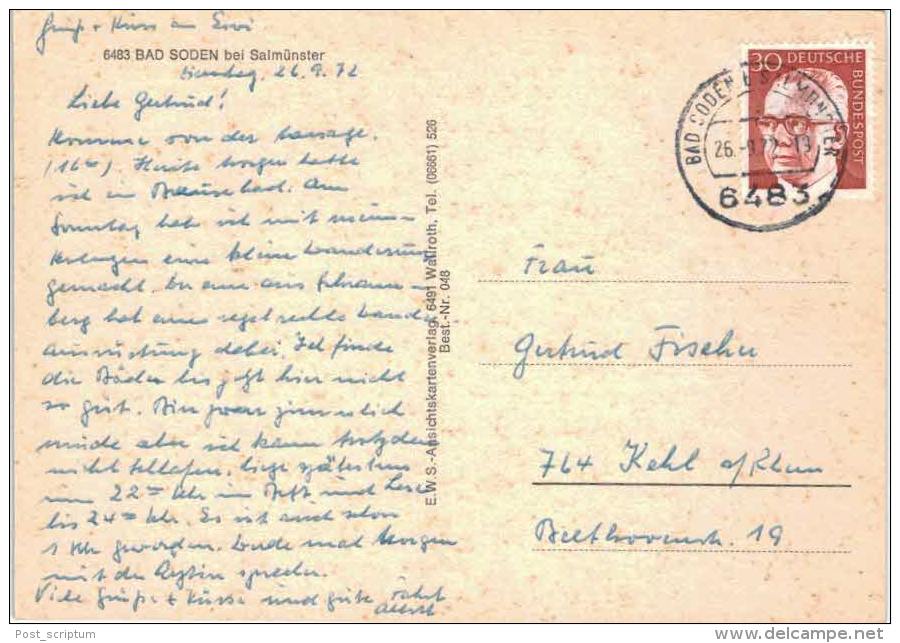 Gruß + Kuss an Erwi
6483 BAD SODEN bei Salmünster
Dienstag, 26.9.72
Liebe Gertrud!
Komme von der Massage.
(16 Uhr) Heute morgen hatte
ich ein Brausebad. Am
Sonntag hab ich mit meinen
eine kleine Wanderung
gemacht. Die eine aus
berg hat eine regelrechte Wander
ausrüstung dabei. Ich finde
die Bäder bis jetzt hier nicht
so gut. Bin zwar ziemlich
müde aber ich kann trotzdem
nicht schlafen. Liege spätestens
um 22 Uhr im Bett und lese
bis 24 Uhr. Es ist auch schon
1 Uhr geworden. Werde mal Morgen
mit der Ärztin sprechen.
Viele Grüße + Küsse und gute Fahrt
E.W.S.-Ansichtskartenverlag, 6491 Wallroth, Tel. (06661) 526
Best.-Nr. 048
30 DEUTSCHE
BUNDESPOST
BAD SODEN B SALMÜNSTER
26.-9.72-13
6483
Frau
Gertrud Fischer
764 Kehl a/Rhein
Beethovenstr. 19
Post_scriptum
http://www.delcampe.net